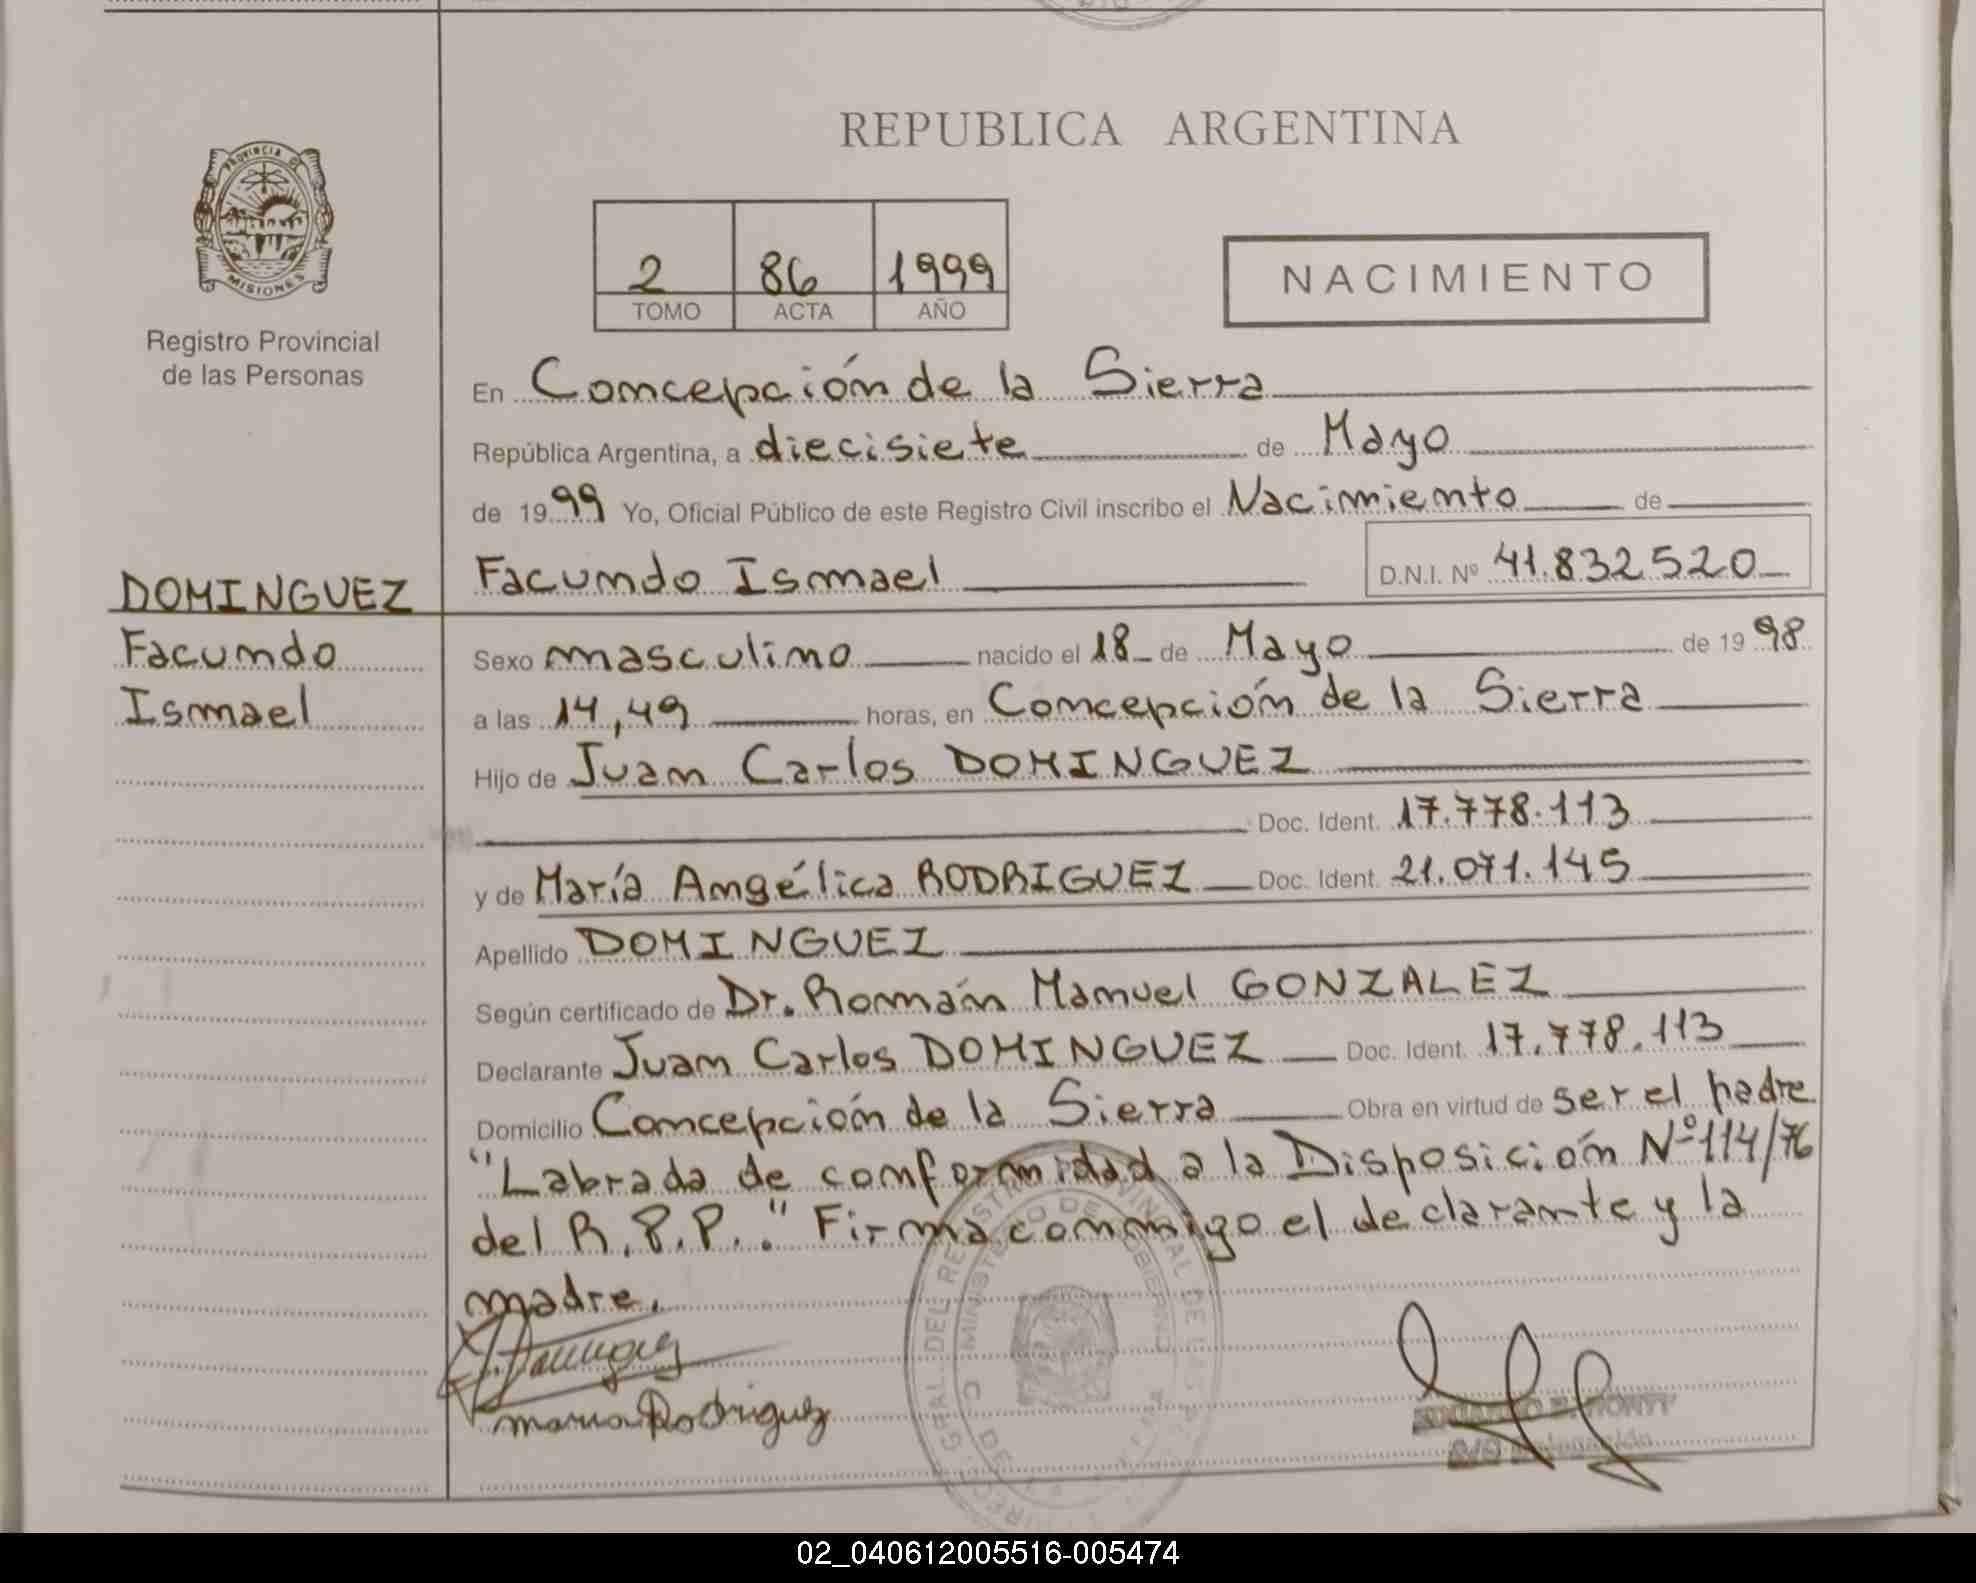 REPUBLICA ARGENTINA
PROVINCIA DE
MISIONES
Registro Provincial
de las Personas
2 86 1999
TOMO ACTA AÑO
NACIMIENTO
En Concepción de la Sierra
República Argentina, a diecisiete de Mayo
de 1999 Yo, Oficial Público de este Registro Civil inscribo el Nacimiento de
Facundo Ismael D.N.I. Nº 41.832520
DOMINGUEZ
Facundo
Ismael
Sexo masculino nacido el 18 de Mayo de 1998
a las 14,49 horas, en Concepción de la Sierra
Hijo de Juan Carlos DOMINGUEZ
Doc. Ident. 17.778.113
y de María Angélica RODRIGUEZ Doc. Ident. 21.071.145
Apellido DOMINGUEZ
Según certificado de Dr. Román Manuel GONZALEZ
Declarante Juan Carlos DOMINGUEZ Doc. Ident. 17.778.113
Domicilio Concepción de la Sierra Obra en virtud de ser el padre
"Labrada de conformidad a la Disposición Nº 114/76
del R.P.P.." Firma conmigo el declarante y la
madre.
Maria Rodriguez
02_040612005516-005474